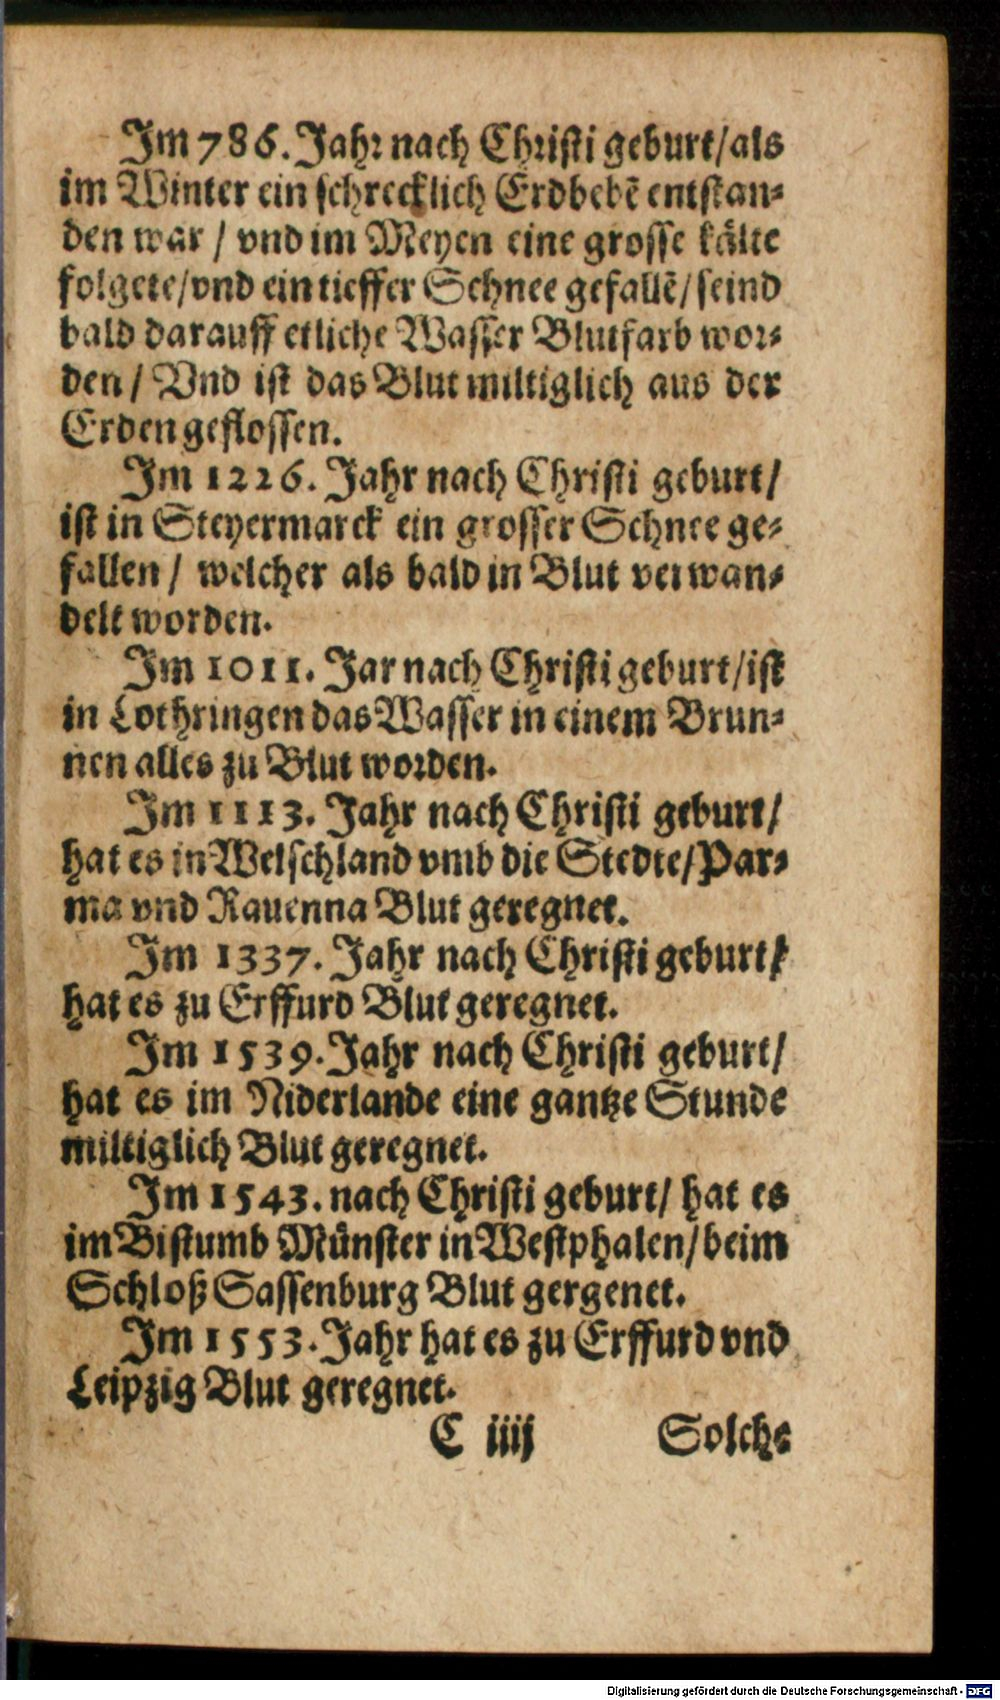 Im 786. Jahr nach Christi geburt/als
im Winter ein schrecklich Erdbebẽ entstan-
den war / vnd im Meyen eine grosse kålte
folgete/vnd ein tieffer Schnee gefallẽ/seind
bald darauff etliche Wasser Blutfarb wor-
den / Vnd ist das Blut miltiglich aus der
Erden geflossen.
Im 1226. Jahr nach Christi geburt/
ist in Steyermarck ein grosser Schnee ge-
fallen / welcher als bald in Blut verwan-
delt worden.
Im 1011. Jar nach Christi geburt/ist
in Lothringen das Wasser in einem Brun-
nen alles zu Blut worden.
Im 1113. Jahr nach Christi geburt/
hat es in Welschland vmb die Stedte/Par-
ma vnd Rauenna Blut geregnet.
Im 1337. Jahr nach Christi geburt/
hat es zu Erffurd Blut geregnet.
Im 1539. Jahr nach Christi geburt/
hat es im Niderlande eine gantze Stunde
miltiglich Blut geregnet.
Im 1543. nach Christi geburt/ hat es
im Bistumb Můnster in Westphalen/beim
Schloß Sassenburg Blut gergenet.
Im 1553. Jahr hat es zu Erffurd vnd
Leipzig Blut geregnet.
C iiij Solche
Digitalisierung gefördert durch die Deutsche Forschungsgemeinschaft - DFG